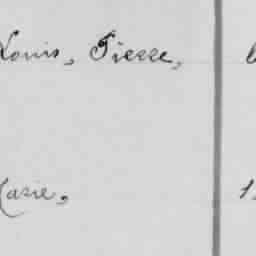 Louis, Pierre,
Marie,